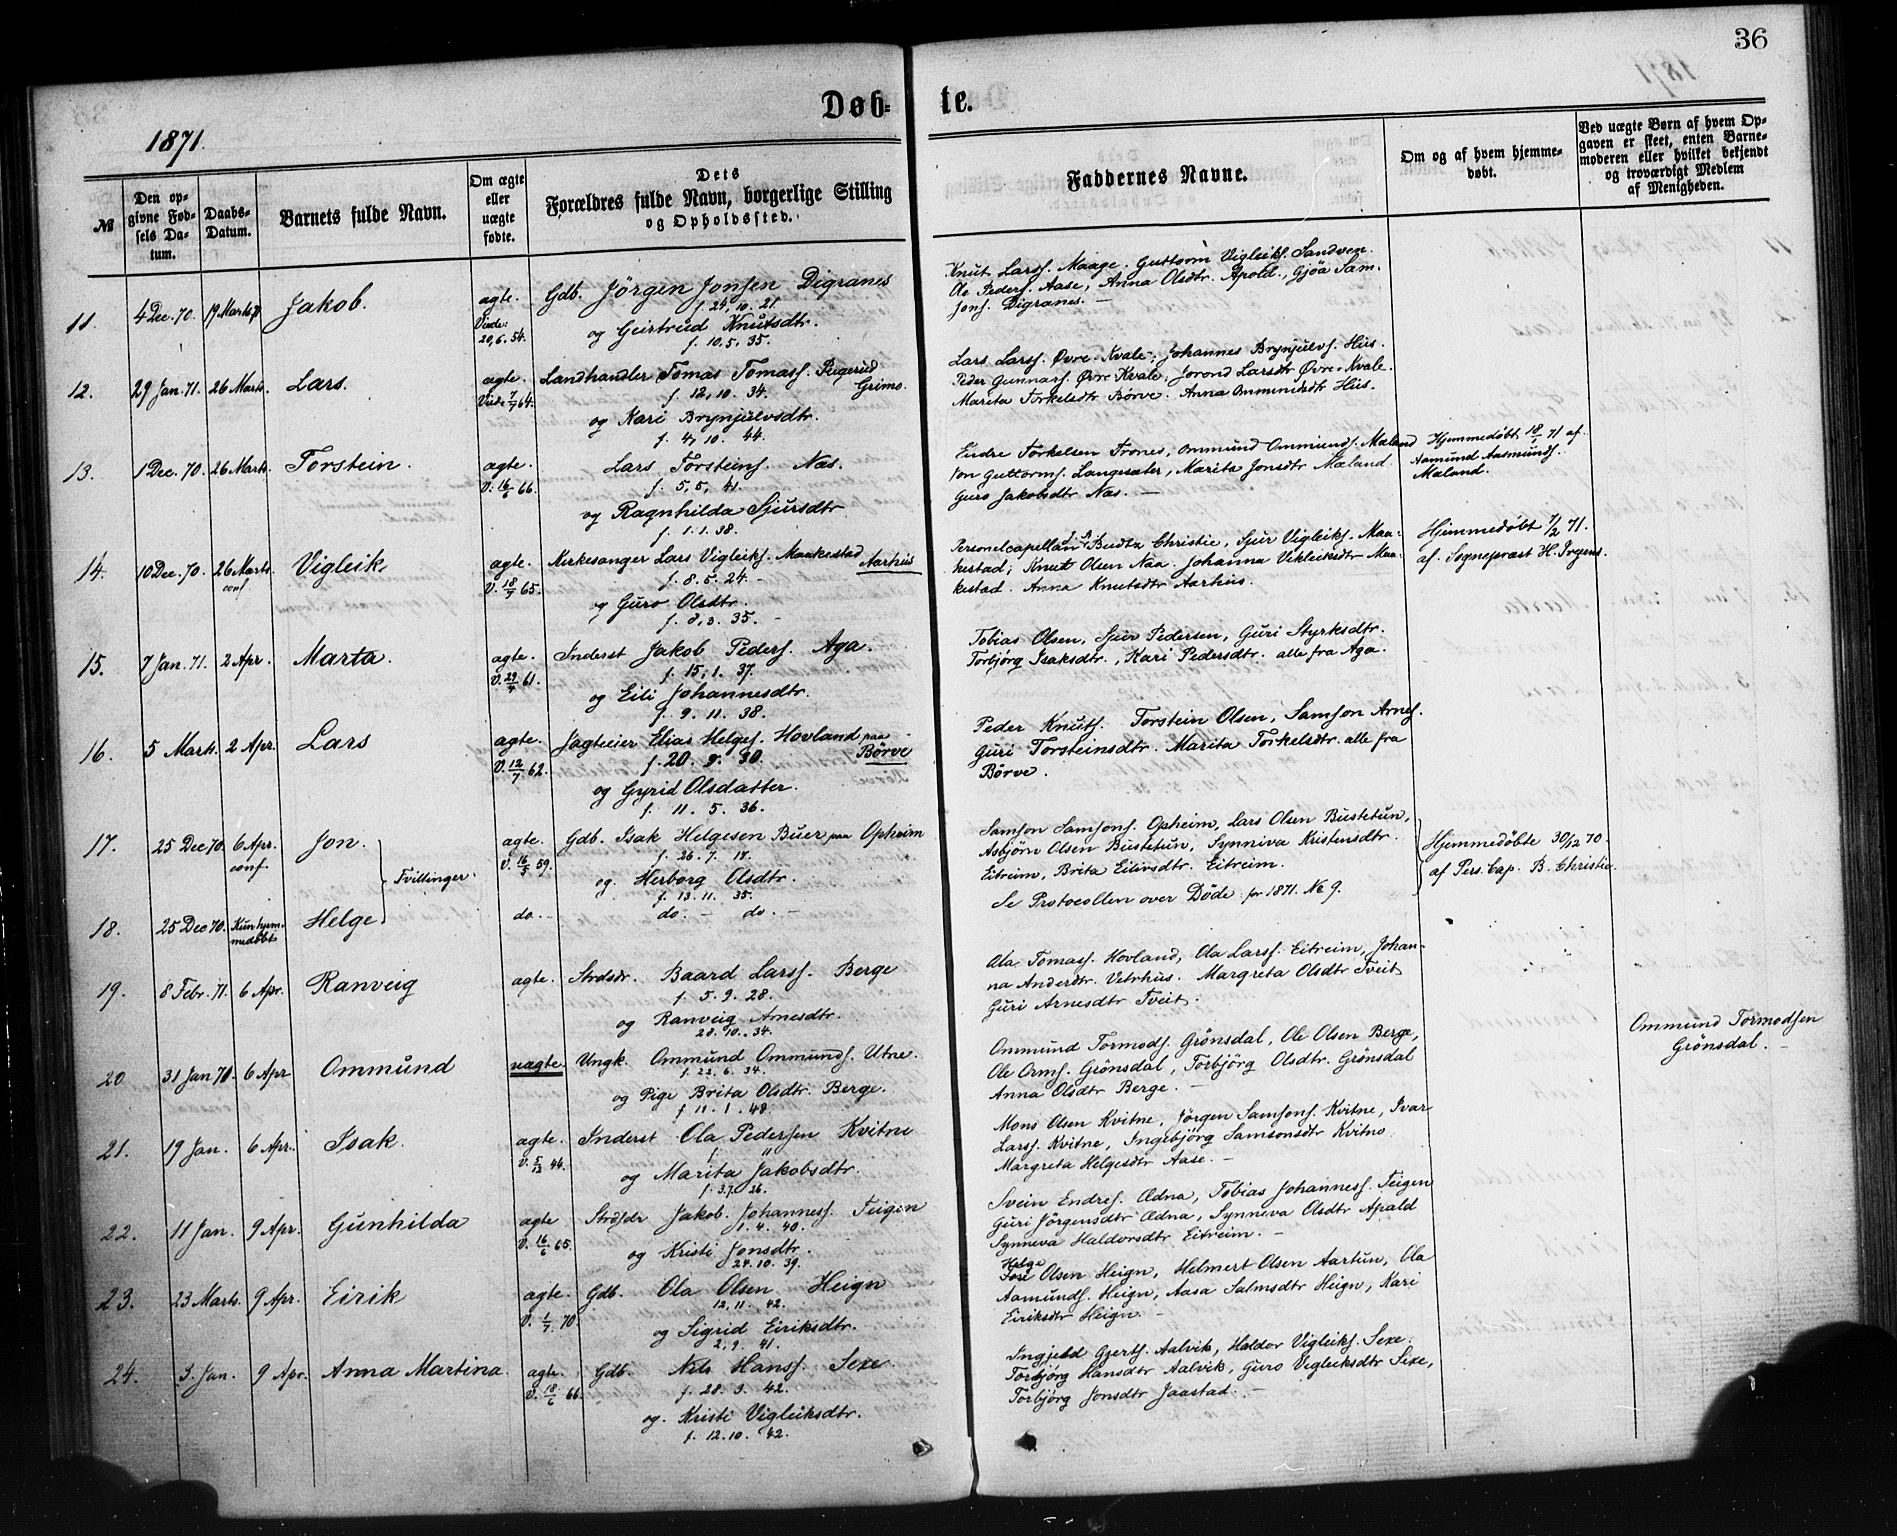 36
Døb- te.
1871.
№
Den opgivne Fødsels Datum.
Daabs-Datum.
Barnets fulde Navn.
Om ægte eller uægte fødte.
Dets Forældres fulde Navn, borgerlige Stilling og Opholdssted.
Faddernes Navne.
Om og af hvem hjemmedøbt.
Ved uægte Børn af hvem Opgaven er skeet, enten Barnemoderen eller hvilket bekjendt og troværdigt Medlem af Menigheden.
11. 4 Dec. 70. 19 Marts 71 Jakob. ægte. Gdb. Jörgen Jonsen Digranes
f. 24, 10. 21
Viede: 20, 6. 54. og Geirtrud Knutsdtr.
f. 10. 5. 35.
Knut Larss. Maage. Guttorm Vigleiks. Sandven.
Ole Peders. Aase, Anna Olsdtr. Apold., Gjøa Sam-
sons. Digranes. —
12. 29 Jan. 71. 26 Marts. Lars. ægte. Landhandler Tomas Tomass. Grimo.
f. 12, 10. 34.
Viede 7/7 64. og Kari Brynjulvsdtr.
f. 4, 10. 44.
Lars Larss. Øvre-Kvale, Johannes Brynjulvs. Hus.
Peder Gunnars. Øvre Kvale, Jorond Larsdtr Øvre-Kvale.
Marita Torkelsdtr Børve. Anna Ommundsdtr Hus.
13. 1 Dec. 70. 26 Marts. Torstein. ægte. Lars Torsteins. Næs.
f. 5, 5, 41.
V. 16/6 66. og Ragnhilda Sjursdtr
f. 1. 1. 38.
Endre Torkelsen Trones, Ommund Ommunds. Mæland
Jon Guttorms. Langesæter, Marita Jonsdtr Mæland.
Guro Jakobsdtr Næs. —
Hjemmedøbt 18/1 71 af
Aamund Aasmunds.
Mæland.
14. 10 Dec. 70. 26 Marts conf. Vigleik. ægte. Kirkesanger Lars Vigleiks. Maakestad Aarhus
f. 8. 5. 24. —
V. 18/7 65. og Guro Olsdtr.
f. 8, 3. 35. —
Personelcapellan Budtz Christie, Sjur Vigleiks. Maa-
kestad, Knut Olsen Naa. Johanna Vikleiksdtr Maa-
kestad. Anna Knutsdtr Aarhus.
Hjemmedøbt 7/2 71.
af. Sognepræst H. Irgens.
15. 7 Jan. 71. 2 Apr. Marta. ægte. Inderst Jakob Peders. Aga.
f. 15, 1. 37.
V. 29/4 61. og Eili Johannesdtr.
f. 9. 11. 38.
Tobias Olsen, Sjur Pedersen, Guri Styrksdtr.
Torbjörg Isaksdtr., Kari Pedersdtr. alle fra Aga.
16. 5 Marts. 2 Apr. Lars ægte. Jagteier Elias Helges. Hovland paa Börve
f. 20. 9. 30.
V. 12/7 62. og Gyrid Olsdatter.
f. 11. 5. 36.
Peder Knuts. Torstein Olsen, Samson Arnes.
Guri Torsteinsdtr. Marita Torkelsdtr. alle fra
Börve.
17. 25 Dec 70 6 Apr. conf. Jon. Tvillinger ægte. Gdb. Isak Helgesen Buer paa Opheim
f. 26. 7. 17.
V. 16/5 59. og Herborg Olsdtr.
f. 13. 11. 35.
Samson Samsons. Opheim, Lars Olsen Bustetun,
Asbjörn Olsen Bustetun, Synniva Kristensdtr.
Eitreim, Brita Eilivsdtr. Eitreim.
Hjemmedøbte 30/12 70
af Pers. Cap. B. Christie
18. 25 Dec 70. Kun hjemmedøbt Helge do. — do. — do. —
Se Protocollen over Døde for 1871. № 9.
19. 8 Febr. 71. 6 Apr. Ranveig ægte. Strdsdr. Baard Larss. Berge
f. 5. 9. 28.
og Ranveig Arnesdtr.
28. 10. 34.
Ola Tomass. Hovland, Ola Larss. Eitreim, Johan-
na Andersdtr. Vetrhus. Margreta Olsdtr Tveit
Guri Arnesdtr Tveit.
20 31 Jan 71. 6 Apr Ommund uægte. Ungk. Ommund Ommunds. Utne.
f. 22. 6. 34.
og Pige Brita Olsdtr. Berge.
f 11. 1. 48.
Ommund Tormods. Grönsdal, Ole Olsen Berge,
Ole Orms. Grönsdal, Torbjörg Olsdtr. Grönsdal
Anna Olsdtr Berge. —
Ommund Tormodsen
Grönsdal. —
21. 19 Jan. 6 Apr. Isak. ægte. Inderst Ola Pedersen Kvitne
f. "
V. 5/12 46. og Marita Jakobsdtr.
f. 3. 7. 26.
Mons Olsen Kvitne, Jörgen Samsons. Kvitne, Ivar
Larss. Kvitne, Ingebjörg Samsonsdtr Kvitno
Margreta Helgesdtr Aase. —
22. 11 Jan. 9 Apr. Gunhilda ægte Strdsdr Jakob. Johanness. Teigen
1. 4. 40.
V. 16/6 65. og Kristi Jonsdtr.
24. 10. 39.
Svein Endres. Ædna, Tobias Johanness. Teigen
Guri Jörgensdtr Ædna, Synneva Olsdtr Apald
Synneva Haldorsdtr Eitreim. —
23. 23 Marts. 9 Apr. Eirik ægte. Gdb. Ola Olsen Heign
12, 11. 42.
V. 1/7. 70. og Sigrid Eiriksdtr.
2, 9. 41.
Helge
Olsen Heign, Helmert Olsen Aartun, Ola
Aamunds. Heign, Aasa Salmsdtr Heign, Kari
Eiriksdtr Heign. —
24. 3. Jan. 9 Apr. Anna Martina. ægte. Gdb. Nils Hanss. Sexe
f. 28. 3. 42.
V. 18/6 66. og. Kristi Vigleiksdtr.
f. 12. 10. 42.
Ingjeld Gjerts. Aalvik, Haldor Vigleiks. Sexe.
Torbjörg Hansdtr Aalvik, Guro Vigleiksdtr Sexe,
Torbjörg Jonsdtr Jaastad. —